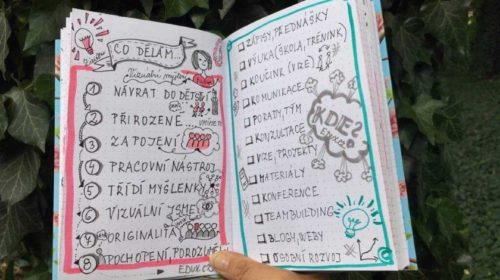 CO DĚLÁM...
Vizuální myšlení
1 NÁVRAT DO DĚTSTVÍ
2 PŘIROZENÉ...
3 ZAPOJENÍ
4 PRACOVNÍ NÁSTROJ
5 TŘÍDÍ MYŠLENKY
6 VIZUÁLNÍ JSME
7 ORIGINALITA
8 POCHOPENÍ, POROZUMĚNÍ
ZÁPISY, PŘEDNÁŠKY
VÝUKA (ŠKOLA, TRÉNINK)
KOUČINK (VIZE)
KOMUNIKACE
PORADY, TÝM
KONZULTACE
VIZE, PROJEKTY
MATERIÁLY
KONFERENCE
TEAMBUILDING
BLOGY, WEBY
OSOBNÍ ROZVOJ
KDE?